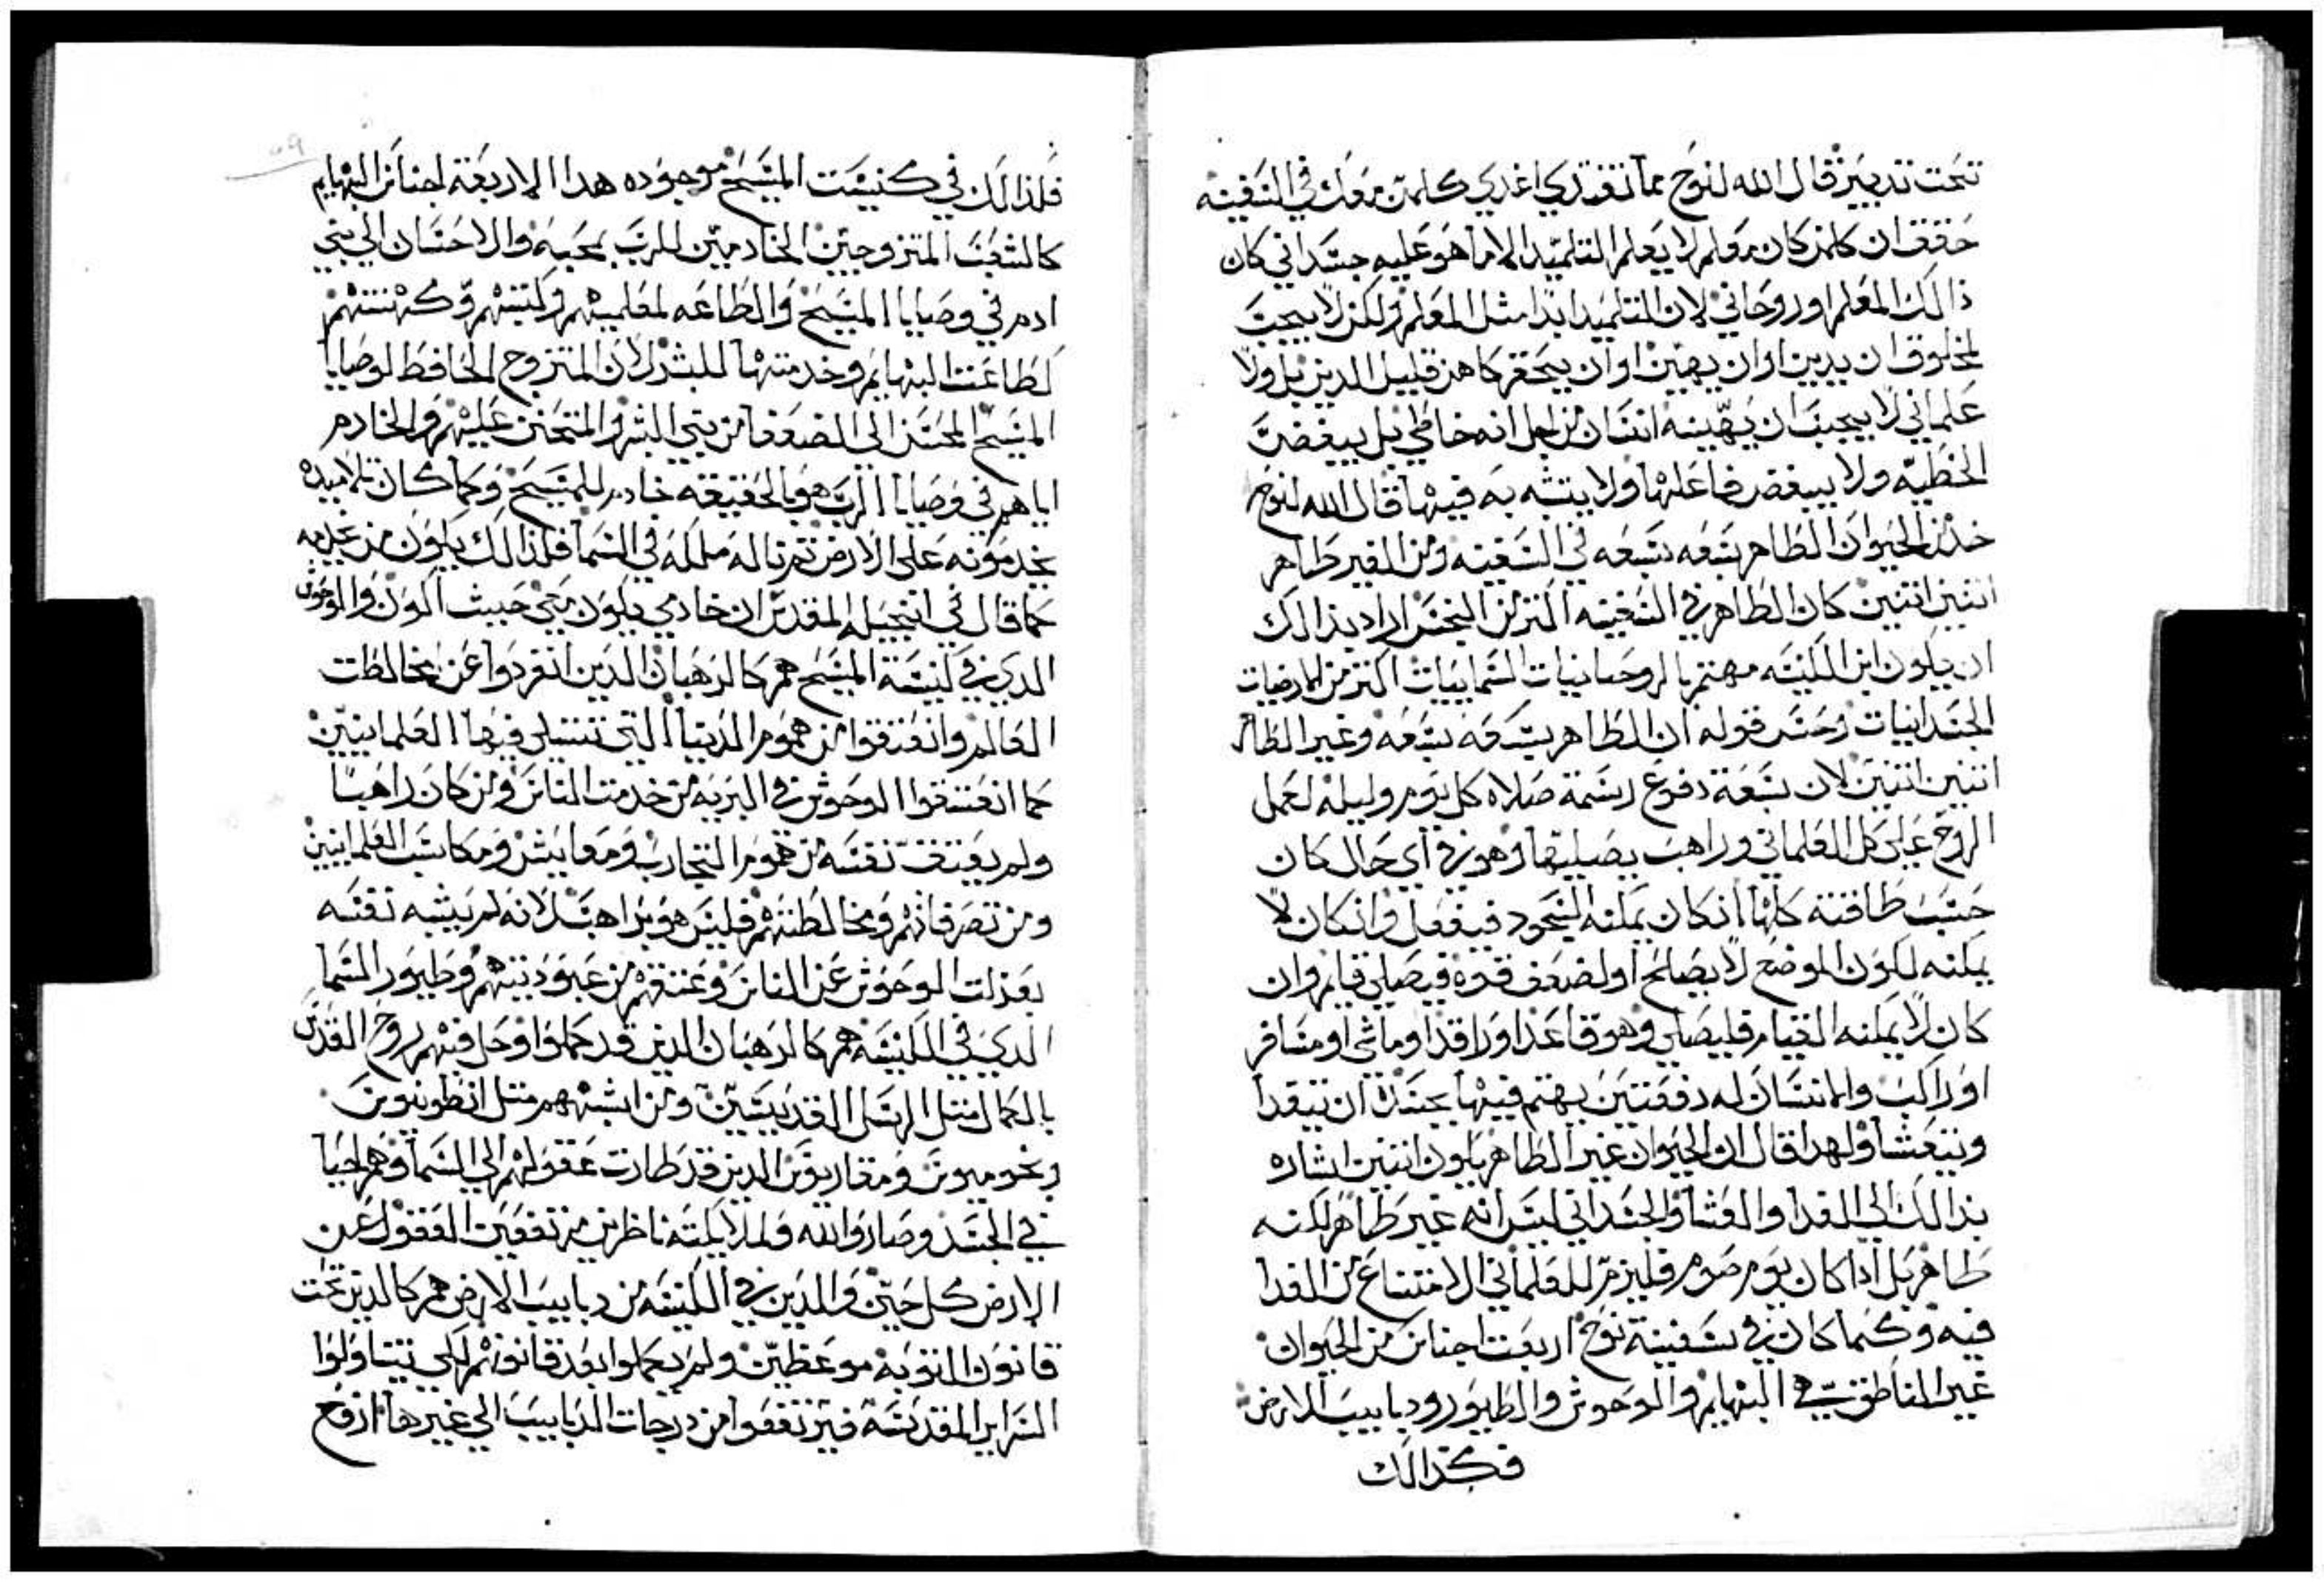 تحت تدبير قال الله لنوح مما تغتدي اغدي كلمن معك في السفينه
حقق ان كلمن كان معلم لا يعلم التلميد الا ما هو عليه جسداني كان
دالك المعلم او روحاني لان التلميد ابدا مثل المعلم ولكن لا يجب
لمخلوق ان يدين او ان يهين او ان يحتقر كاهن قليل الدين بل ولا
علماني لا يجب ان يهينه انسان من اجل انه خاطي بل يبغض
الخطيه ولا يبغض فاعلها ولا يتشبه به فيها قال الله لنوح
خد من الحيوان الطاهر سبعه سبعه في السفينه ومن الغير طاهر
اتنين اتنين كان الطاهر في السفينه اكتر من النجس اراد بدالك
ان يكون ابن الكنيسه مهتم بالروحانيات السمايات اكتر من الارضيات
الجسدانيات وحسن قوله ان الطاهر سبعه سبعه وغير الطاهر
اتنين اتنين لان سبعة دفوع رسمة صلاه كل يوم وليله لعمل
الروح على كل العلماني وراهب يصليها وهو في اي حال كان
حسب طاقته كلها ان كان يمكنه السجود فيفعل وان كان لا
يمكنه لكون الموضع لا يصلح او لضعف قوه فيصلي قايم وان
كان لا يمكنه القيام فليصلي وهو قاعدا او راقدا او ماشي او مسافر
او راكب والانسان له دفعتين يهتم فيها بجسده ان يتغدا
ويتعشا ولهدا قال ان الحيوان غير الطاهر يكون اتنين اشاره
بدالك الي الغدا والعشا والجسداني ليس انه غير طاهر لكنه
طاهر بل ادا كان يوم صوم فليزم للعلماني الامتناع من الغدا
فيه وكما كان في سفينة نوح اربعت اجناس من الحيوان
غير الناطق هي البهايم والوحوش والطيور ودبابيب الارض
فكدالك
فلدالك في كنيست المسيح موجوده هدا الاربعة اجناس البهايم
كالشعب المتزوجين الخادمين للرب بمحبه والاحسان الي بني
ادم في وصايا المسيح والطاعه لمعلميهم وكهنتهم
كطاعت البهايم وخدمتها للبشر لان المتزوج الحافظ لوصايا
المسيح المحسن الي الضعفا من بني البشر والمتحنن عليهم والخادم
اياهم في وصايا الرب هو بالحقيقه خادم للمسيح وكما كان تلاميده
يخدموته على الارض تم نالو مملكه في السما فلدالك يكون من يخدمه
كما قال في انجيله المقدس ان خادمي يكون معي حيث اكون والوحوش
الدي في كنيسة المسيح هم كالرهبان الدين انفردوا عن مخالطت
العالم وانعتقوا من هموم الدنيا التي تسلي فيها العلمانيين
كما انعتقوا الوحوش في البريه من خدمت الناس ومن كان راهبا
ولم يعتق نفسه من هموم التجارب ومعايش ومكاسب العلمانيين
ومن تصرفاتهم ومخالطتهم فليس هو براهب لانه لم يشبه نفسه
بعزلت الوحوش عن الناس وعتقهم من عبوديتهم وطيور السما
الدي في الكنيسه هم كالرهبان الدين قد كملوا وحل فيهم روح القدس
بالكمال متل الرسل القديسين ومن اشبههم متل انطونيوس
وبخوميوس ومقاريوس الدين قد طارت عقولهم الي السما وهم احيا
في الجسد وصاروا لله ولملايكته ناظرين مرتفعين العقول عن
الارض كل حين والدين في الكنيسه من دبابيب الارض هم كالدين تحت
قانون التوبه موعظين ولم يكملوا بعد قانونهم لكي يتناولوا
السراير المقدسه فيرتفعوا من درجات الدبابيب الي غيرها ارفع